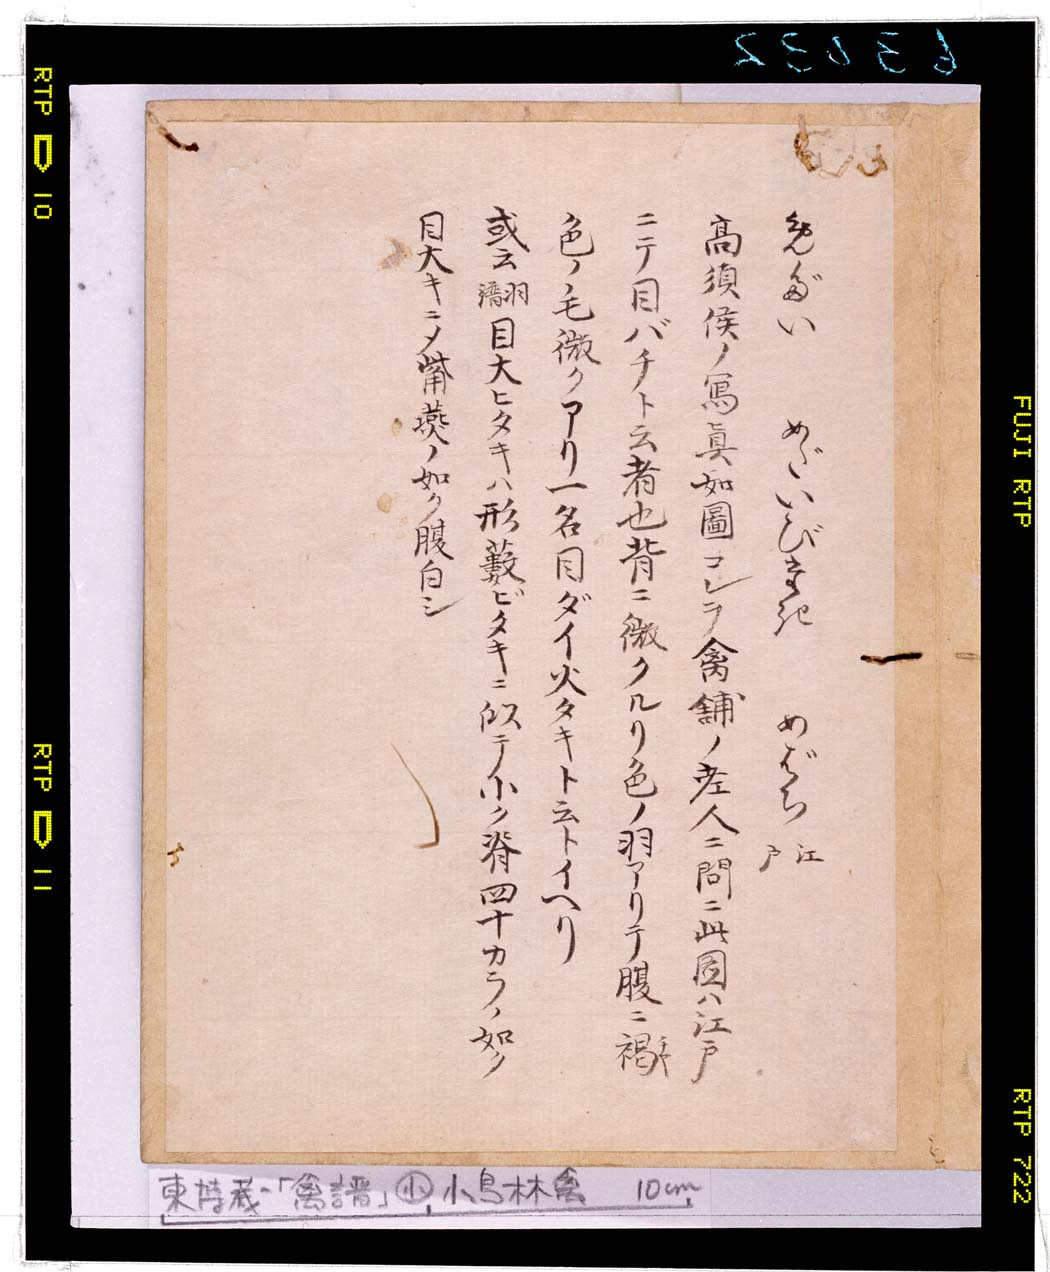 63632
RTP 10
RTP 11
FUJI RTP
RTP 722
めだい めだいびたき めばち 江戸
高須侯ノ寫真如圖コレヲ禽舖ノ老人ニ問ニ此圖ハ江戸
ニテ目バチト云者也背ニ微クルリ色ノ羽アリテ腹ニ褐チヤ
色ノ毛微クアリ一名目ダイ火タキト云トイヘリ
或云 目大ヒタキハ形藪ビタキニ似テ小ク脊四十カラノ如ク
目大キニメ觜燕ノ如ク腹白シ
東博蔵「禽譜」小 小鳥林禽 10cm